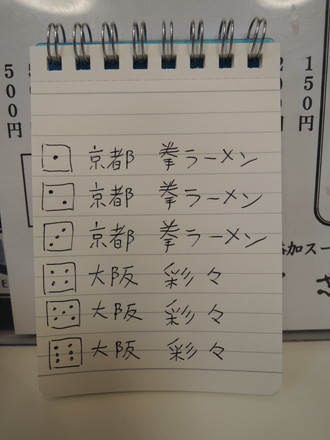 500円
150
円
京都 拳ラーメン
京都 拳ラーメン
京都 拳ラーメン
大阪 彩々
大阪 彩々
大阪 彩々
加スー